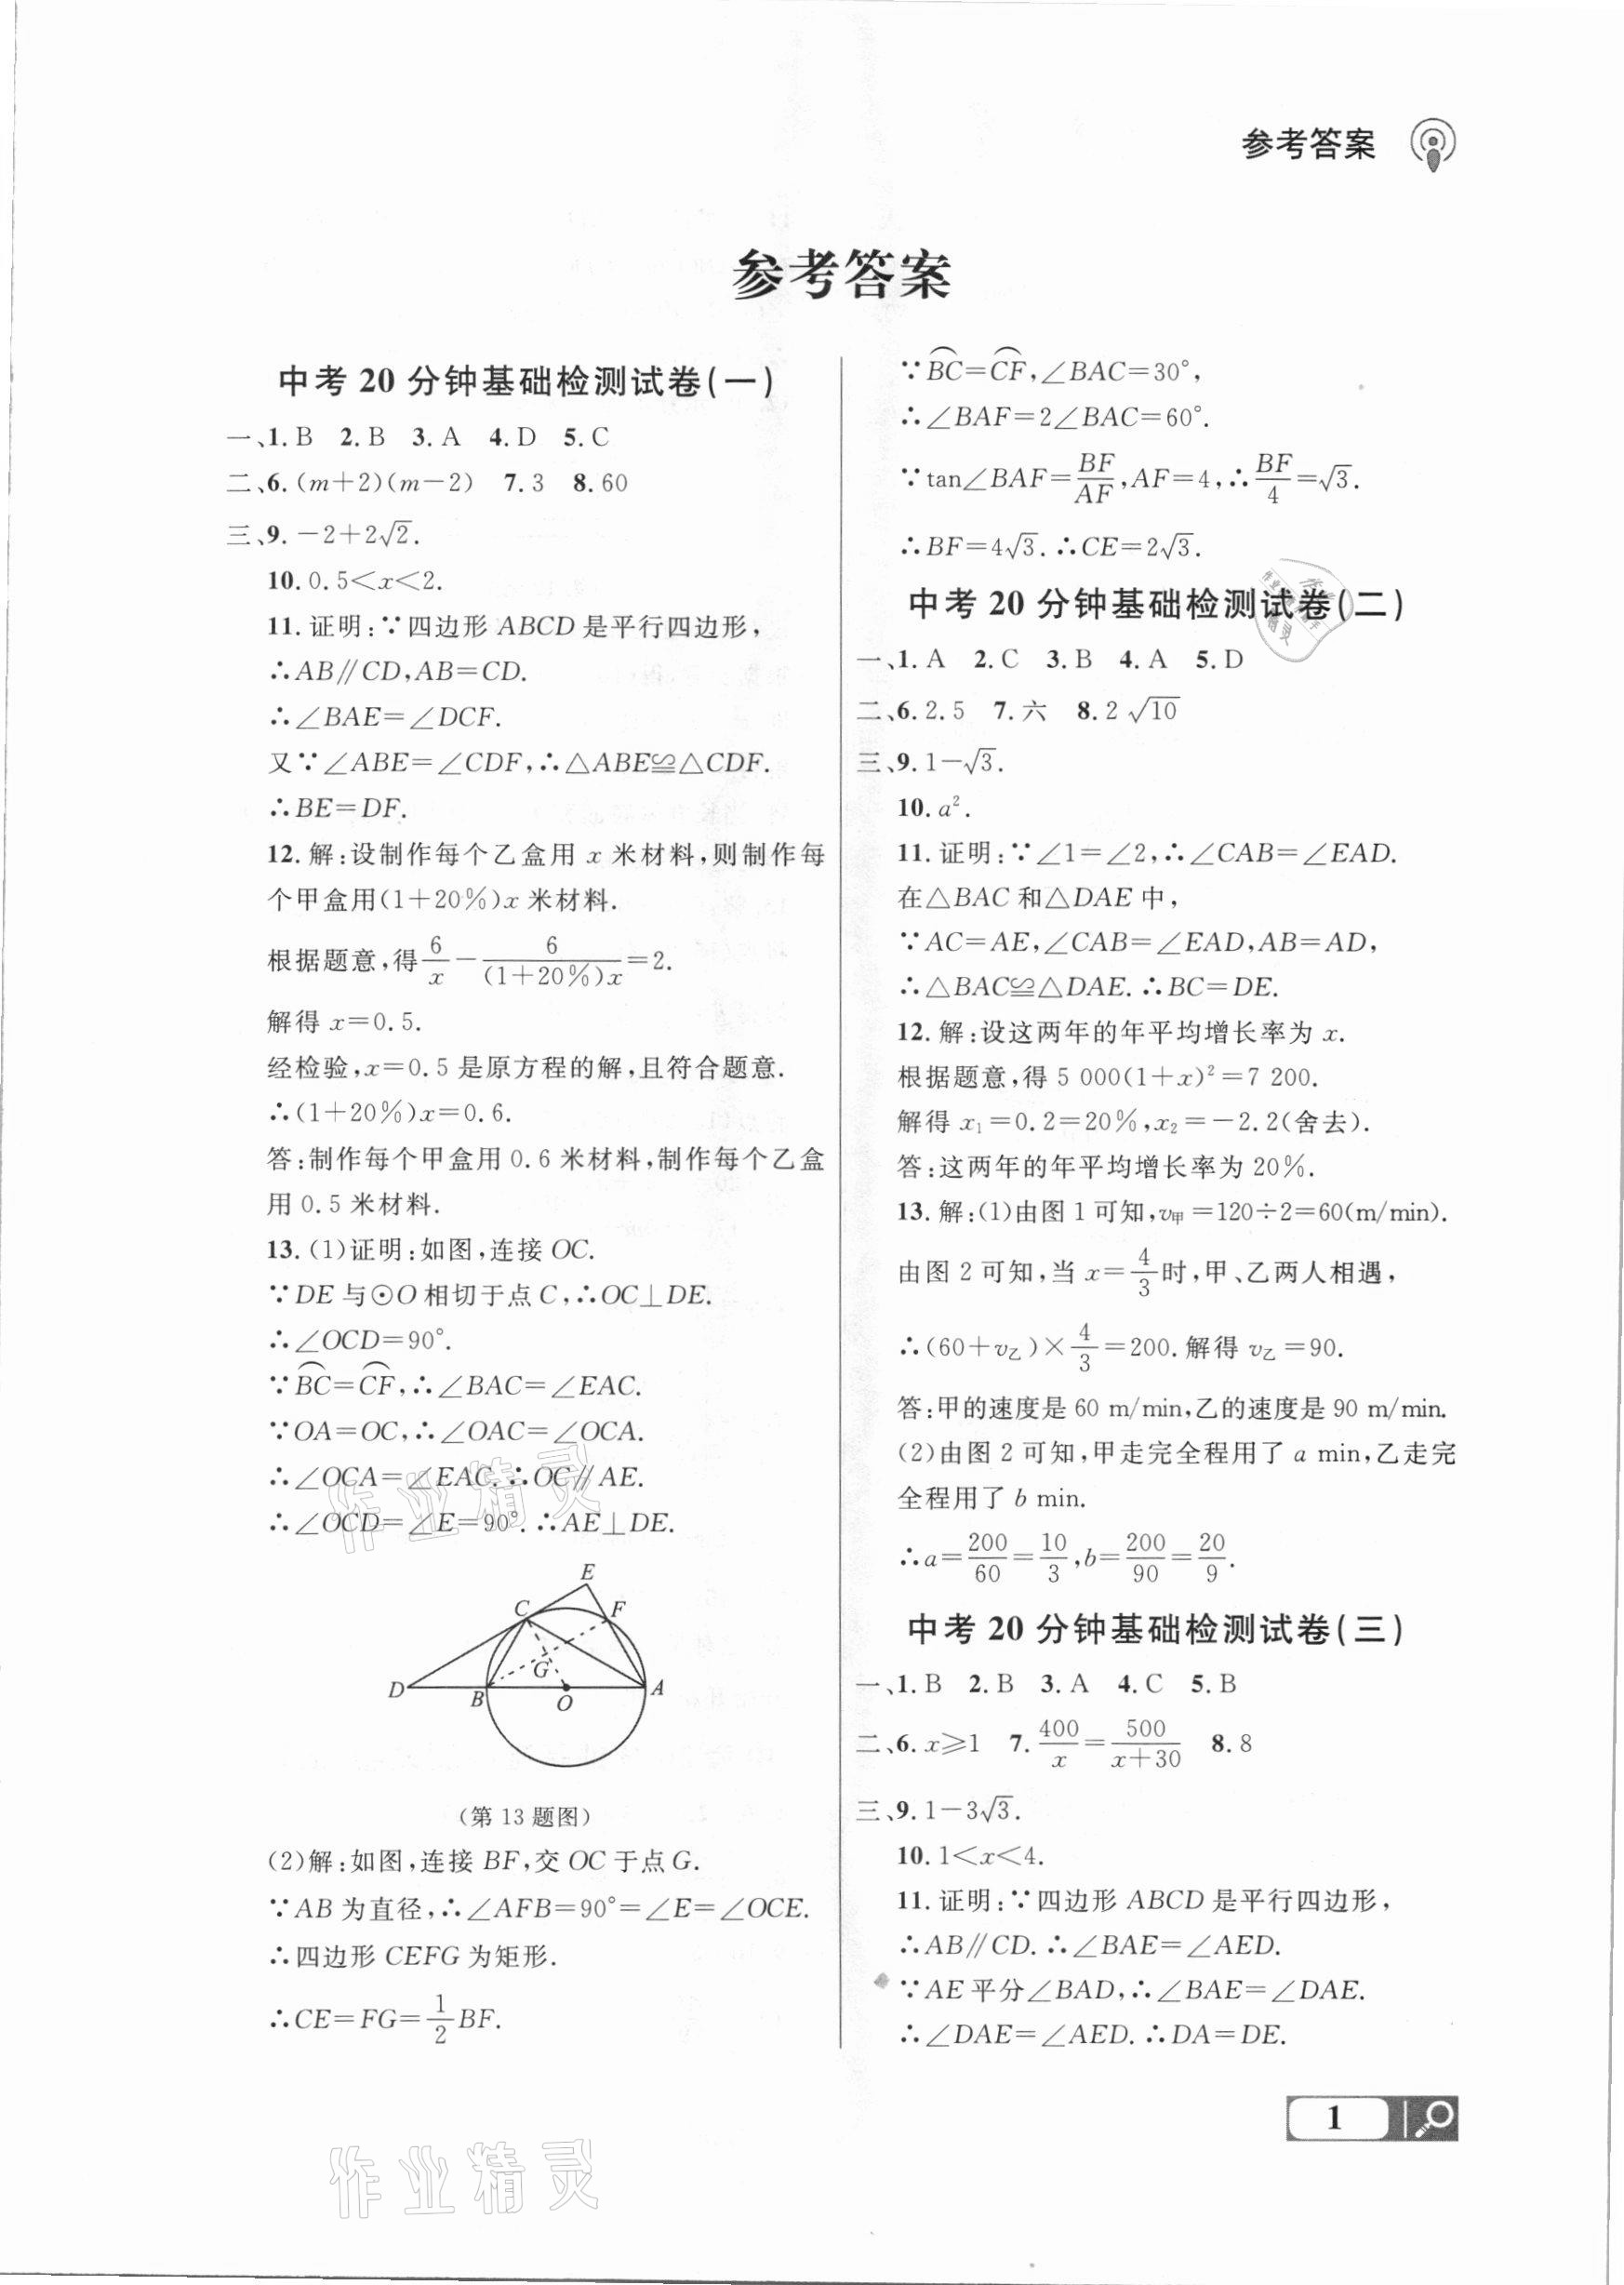 参考答案
参考答案
中考 20 分钟基础检测试卷(一)
一、1. B 2. B 3. A 4. D 5. C
二、6. (m+2)(m-2) 7. 3 8. 60
三、9. -2+2√2.
10. 0.5<x<2.
11. 证明:∵四边形 ABCD 是平行四边形,
∴AB∥CD,AB=CD.
∴∠BAE=∠DCF.
又∵∠ABE=∠CDF,∴△ABE≌△CDF.
∴BE=DF.
12. 解:设制作每个乙盒用 x 米材料,则制作每
个甲盒用(1+20%)x 米材料.
根据题意,得6/x-6/((1+20%)x)=2.
解得 x=0.5.
经检验,x=0.5 是原方程的解,且符合题意.
∴(1+20%)x=0.6.
答:制作每个甲盒用 0.6 米材料,制作每个乙盒
用 0.5 米材料.
13. (1)证明:如图,连接 OC.
∵DE 与⊙O 相切于点 C,∴OC⊥DE.
∴∠OCD=90°.
∵⌒BC=⌒CF,∴∠BAC=∠EAC.
∵OA=OC,∴∠OAC=∠OCA.
∴∠OCA=∠EAC.∴OC∥AE.
∴∠OCD=∠E=90°.∴AE⊥DE.
作业精灵
E
C
F
G
D
B
O
A
(第 13 题图)
(2)解:如图,连接 BF,交 OC 于点 G.
∵AB 为直径,∴∠AFB=90°=∠E=∠OCE.
∴四边形 CEFG 为矩形.
∴CE=FG=1/2BF.
∵⌒BC=⌒CF,∠BAC=30°,
∴∠BAF=2∠BAC=60°.
∵tan∠BAF=BF/AF,AF=4,∴BF/4=√3.
∴BF=4√3.∴CE=2√3.
中考 20 分钟基础检测试卷(二)
一、1. A 2. C 3. B 4. A 5. D
二、6. 2.5 7. 六 8. 2√10
三、9. 1-√3.
10. a².
11. 证明:∵∠1=∠2,∴∠CAB=∠EAD.
在△BAC 和△DAE 中,
∵AC=AE,∠CAB=∠EAD,AB=AD,
∴△BAC≌△DAE.∴BC=DE.
12. 解:设这两年的年平均增长率为 x.
根据题意,得 5 000(1+x)²=7 200.
解得 x₁=0.2=20%,x₂=-2.2(舍去).
答:这两年的年平均增长率为 20%.
13. 解:(1)由图 1 可知,v甲=120÷2=60(m/min).
由图 2 可知,当 x=4/3时,甲、乙两人相遇,
∴(60+v乙)×4/3=200.解得 v乙=90.
答:甲的速度是 60 m/min,乙的速度是 90 m/min.
(2)由图 2 可知,甲走完全程用了 a min,乙走完
全程用了 b min.
∴a=200/60=10/3,b=200/90=20/9.
中考 20 分钟基础检测试卷(三)
一、1. B 2. B 3. A 4. C 5. B
二、6. x≥1 7. 400/x=500/(x+30) 8. 8
三、9. 1-3√3.
10. 1<x<4.
11. 证明:∵四边形 ABCD 是平行四边形,
∴AB∥CD.∴∠BAE=∠AED.
∵AE 平分∠BAD,∴∠BAE=∠DAE.
∴∠DAE=∠AED.∴DA=DE.
1
作业精灵